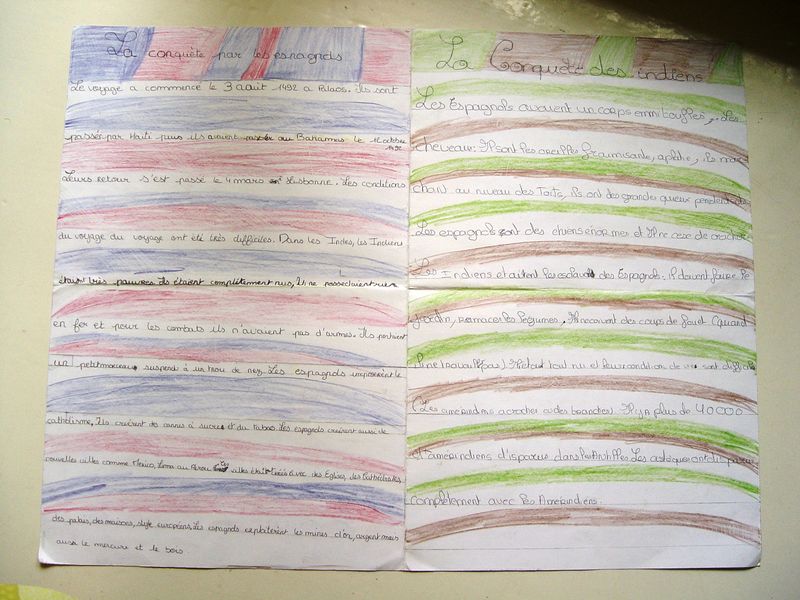 La conquête par les espagnols
Le voyage a commencé le 3 août 1492 a Palos. Ils sont
passer par Haïti puis ils avaient au Bahamas le 12 octobre
1492
Leurs retour s'est passé le 4 mars Lisbonne. Les conditions
du voyage du voyage ont été très difficiles. Dans les Indes, les Indiens
étaient très pauvres ils étaient complètement nus, Ils ne possedaient rien
en fer et pour les combats ils n'avaient pas d'armes. Ils portaient
un petit morceau suspend à un trou de nez. Les espagnols imposèrent le
catholisme, Ils créèrent de cannes à sucres et du tabac. Les espagnols créèrent aussi de
nouvelles villes comme Mexico, Lima au Pérou villes avec des Eglises, des Cathédrales
des palais, des maisons, style européens, Les espagnols exploitèrent les mines d'or, argent mais
aussi le mercure et le bois
La Conquête des indiens
Les Espagnols avaient un corps emmitouflés, Les
cheveaux: Ils ont les oreilles, ils mar
chent au niveau des Toits, Ils ont des grandes queux pendent
Les espagnols ont des chiens énormes et Il ne cesse de cracher
Les Indiens etaitent les esclaves des Espagnols. Il doivent faire le
jardin, ramacer les légumes. Il recoivent des coups de fouet (quand
il ne travaille pas) Il était tout nu et leurs condition de vie sont difficile
(Les amérindins accrocher a des branches). Il y a plus de 40 000
et amérindiens disparue dans les Antilles Les astèques ont disparue
complètement avec les Amérindiens.